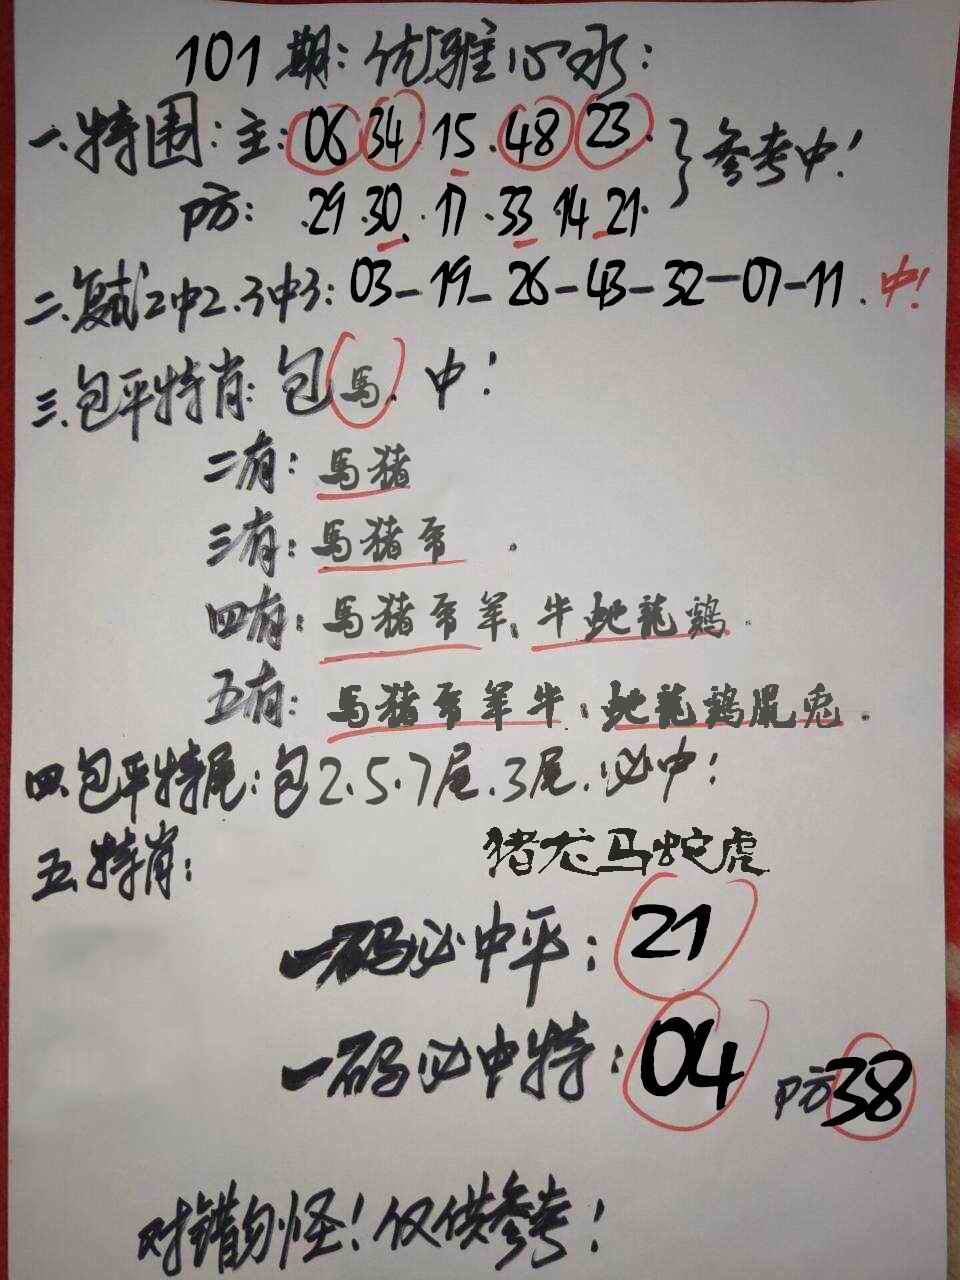 101期:优雅心水:
一.特围:主:06 34 15.48 23. }参考中!
防:.29.30.17.33 14 21.
二.复试2中2.3中3:03-19-26-43-32-07-11.中!
三.包平特肖:包馬.中!
二有:馬猪
三有:馬猪帝.
四有:馬猪帝羊.牛蛇龍鶏.
五有:馬猪帝羊牛.蛇龍鶏鼠兎.
四.包平特尾:包2.5.7尾.3尾.必中!
五.特肖:猪龙马蛇虎
一码必中平:21
一码必中特:04 防38
对错勿怪!仅供参考!